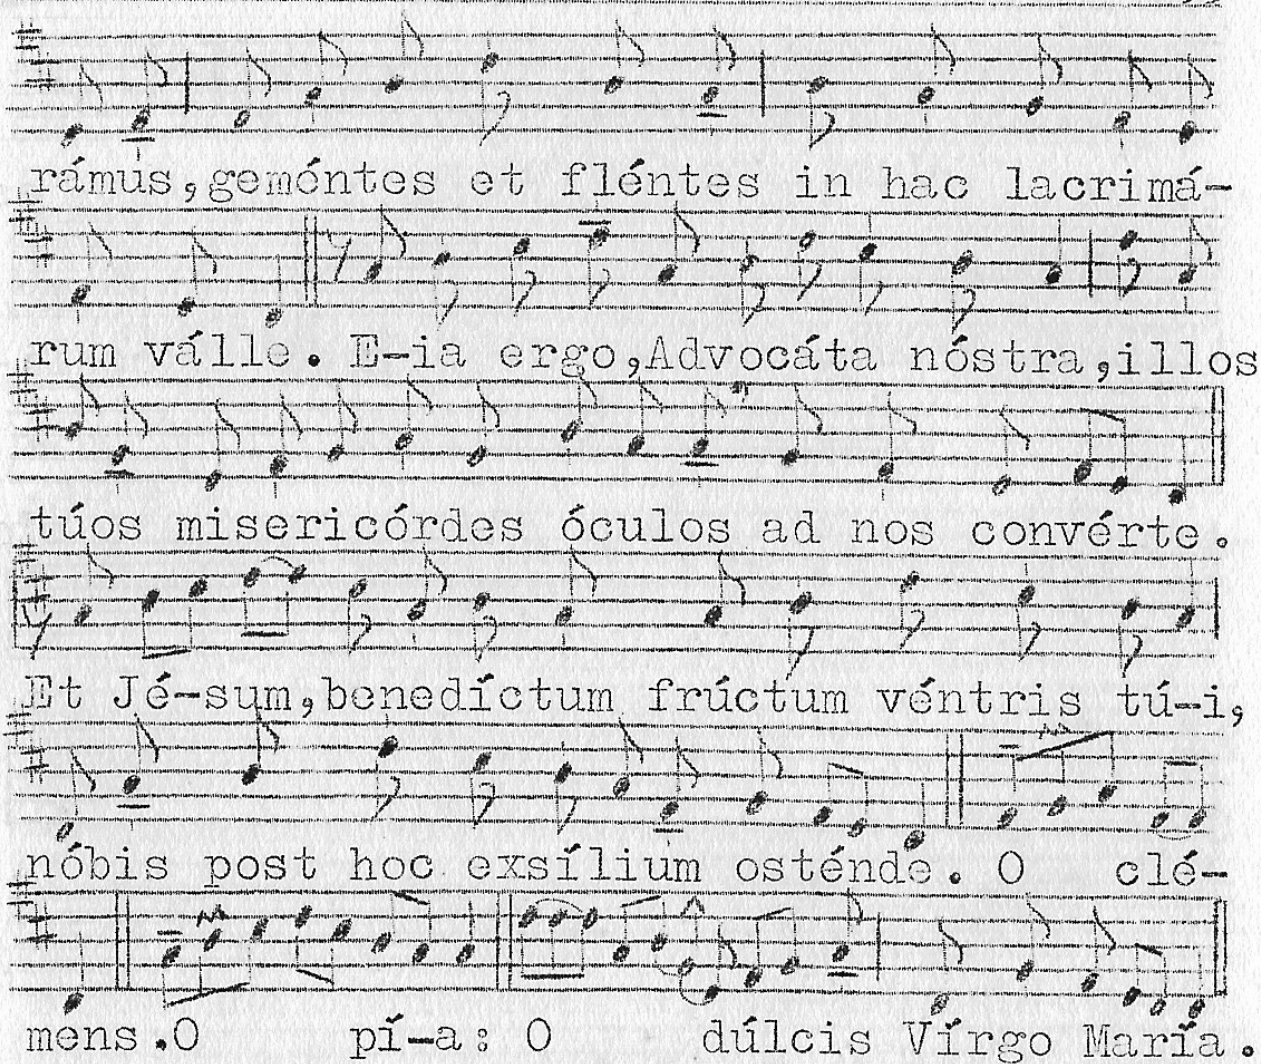 rámus,geméntes et fléntes in hac lacrimá-
rum válle. E-ia ergo,Advocáta nóstra,illos
túos misericórdes óculos ad nos convérte.
Et Jé-sum,benedíctum frúctum véntris tú-i,
nóbis post hoc exsílium osténde. O clé-
mens.O pí-a: O dúlcis Vírgo María.